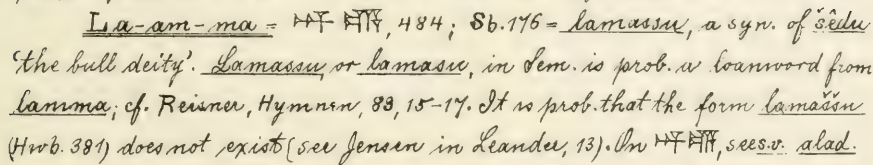 La-am-ma = 𒀭𒆗, 484; Sb. 176 = lamassu, a syn. of šêdu
'the bull deity'. Lamassu, or lamasu, in Sem. is prob. a loanword from
lamma; cf. Reisner, Hymnen, 83, 15-17. It is prob. that the form lamaššu
(Hwb. 381) does not exist (see Jensen in Leander, 13). On 𒀭𒆗, see s.v. alad.